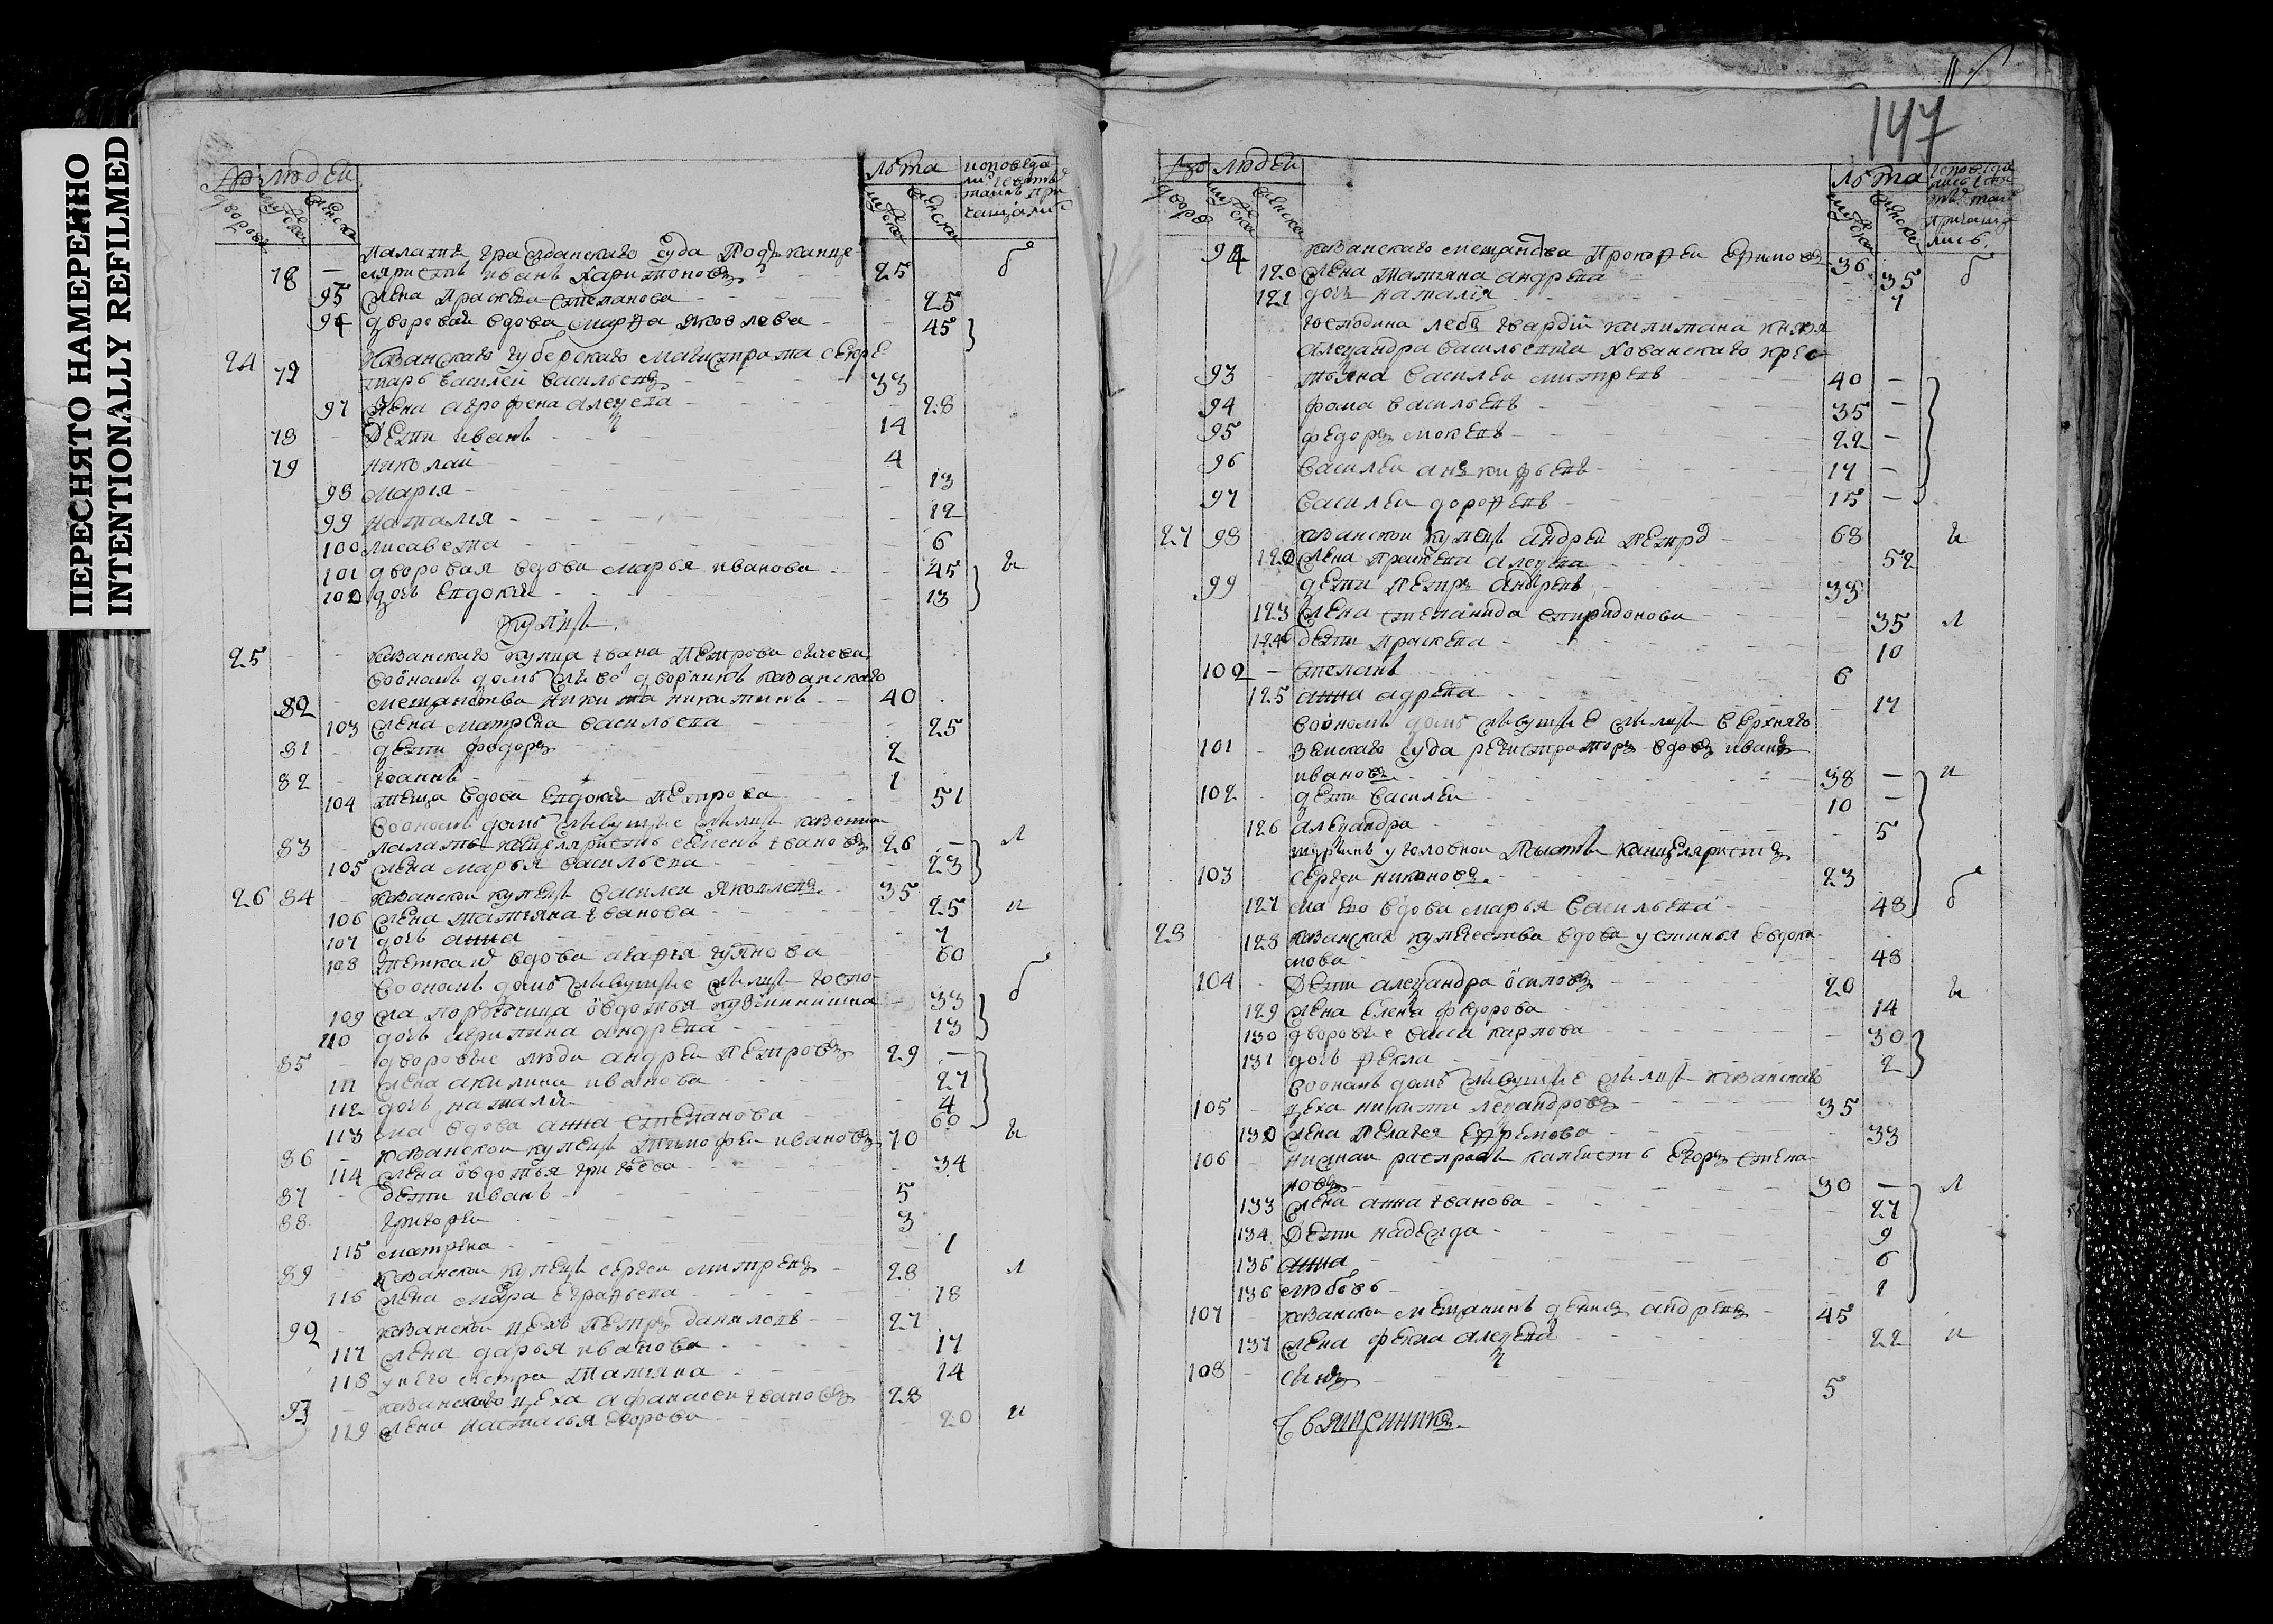 ПЕРЕСНЯТО НАМЕРЕННО
INTENTIONALLY REFILMED
людей
лѣта
палаты гражданскаго суда подъканце
78 — ляристъ иванъ харитоновъ 25 б
95 жена праскева степанова 25
96 дворовая вдова марѳа яковлева 45
24 казанскаго губерскаго магистрата секре
72 тарь василей васильевъ 33
97 жена агрофена алеѯева 28
78 дети иванъ 14
79 николай 4
98 мария 13
99 наталия 12
100 лисавета 6
101 дворовая вдова марья иванова 45 и
102 дочь евдокия 13
купцы
25 казанскаго купца ивана петрова
в ономъ доме дворникъ казанскаго
80 мещанства никита никитинъ 40
103 жена матрена васильева 25
81 дети федоръ 2
82 иоаннъ 1
104 теща вдова евдокия петрова 51
в ономъ доме живущие жильцы казенной
83 палаты канцеляристъ семенъ ивановъ 26 л
105 жена марья васильева 23
26 84 казанской купецъ василей яковлевъ 35
106 жена татияна иванова 25 и
107 дочь анна 7
108 тетка вдова агафия 60
в ономъ доме живущие жильцы госпо
109 жа порутчица овдотья 33 б
110 дочь ирипина андрева 13
85 дворовые люди андрей петровъ 29 —
111 жена акилина иванова 27
112 дочь наталия 4
113 вдова анна степанова 60
86 казанской купецъ тимофеи ивановъ 70 и
114 жена овдотья григорева 34
87 дети иванъ 5
88 григореи 3
115 матрена 1
89 казанской купецъ сергеи митревъ 28 л
116 жена 18
90 казанской цехъ петръ даниловъ 27
117 жена дарья иванова 17
118 у него сестра татияна 14
93 казанскаго цеха афанасеи ивановъ 28
119 жена настасья егорова 20 и
147
людей
лѣта
94 казанскаго мещанства прокофеи ефимовъ 36 б
120 жена татияна андрева 35
121 дочь наталия 7
господина лебъ гвардии капитана князя
алеѯандра васильевича хованскаго крес
93 тьяна василеи митревъ 40 —
94 фома васильевъ 35 —
95 федоръ мокевъ 22 —
96 василеи 17 —
97 василеи дорофевъ 15 —
27 98 казанской купецъ андреи петровъ 68 и
122 жена праскева алеѯева 52
99 дети петръ андревъ 33
123 жена степанида спиридонова 35 л
124 дети праскева 10
100 — степанъ 6
125 анна адрева 17
в ономъ доме живущие жильцы верхняго
101 земскаго суда регистраторъ вдовъ иванъ
ивановъ 38 — и
102 дети василеи 10 —
126 алеѯандра 5
уголовной палаты канцеляристъ
103 сергеи никоновъ 23
127 мать его вдова марья васильева 48 б
28 128 казанская купечества вдова устинья евдоки
мова 48
104 дети алеѯандра осиповъ 20 и
129 жена елена федорова 14
130 дворовые васса карпова 30
131 дочь фекла 2
в ономъ доме живущие жильцы казанскаго
105 цеха никита леѯандровъ 35
132 жена пелагея ефремова 33
106 нижнаи расправы капеистъ егоръ степа
новъ 30 — л
133 жена анна иванова 27
134 дети надежда 9
135 анна 6
136 любовь 1
107 казанской мещанинъ денисъ андревъ 45
137 жена фекла алеѯева 22 и
108 сынъ 5
священникъ